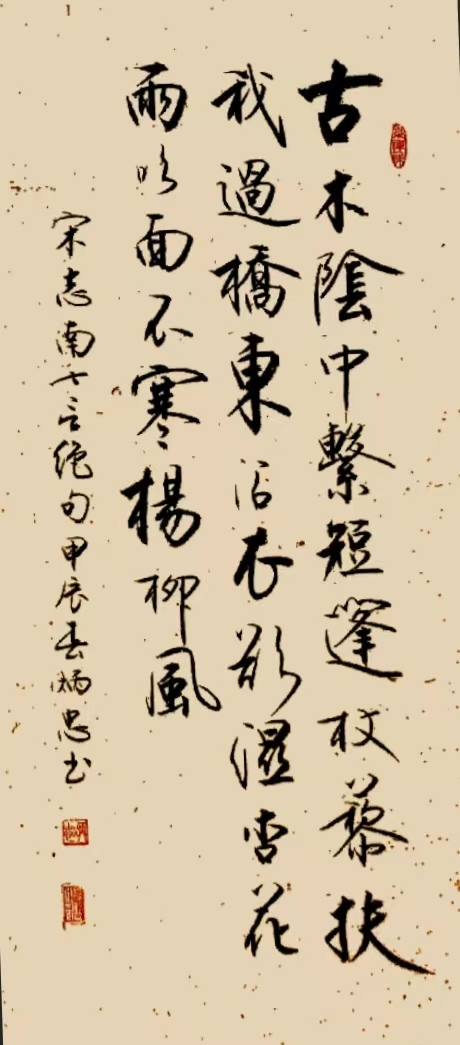 古木陰中繫短篷杖藜扶
我過橋東沾衣欲濕杏花
雨吹面不寒楊柳風
宋志南七言絕句甲辰春炳忠书